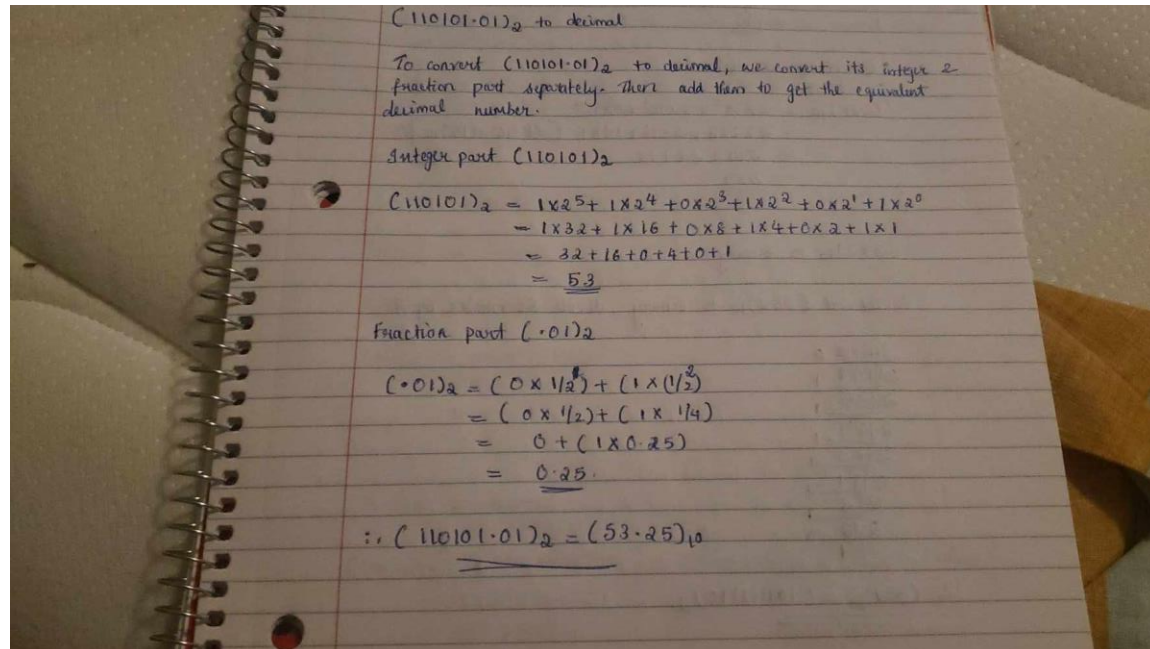 (110101.01)₂ to decimal
To convert (110101.01)₂ to decimal, we convert its integer &
fraction part separately. Then add them to get the equivalent
decimal number.
Integer part (110101)₂
(110101)₂ = 1x2⁵ + 1x2⁴ + 0x2³ + 1x2² + 0x2¹ + 1x2⁰
= 1x32 + 1x16 + 0x8 + 1x4 + 0x2 + 1x1
= 32 + 16 + 0 + 4 + 0 + 1
= 53
Fraction part (.01)₂
(.01)₂ = (0 x 1/2¹) + (1 x (1/2)²
= (0 x 1/2) + (1 x 1/4)
= 0 + (1 x 0.25)
= 0.25.
∴ (110101.01)₂ = (53.25)₁₀